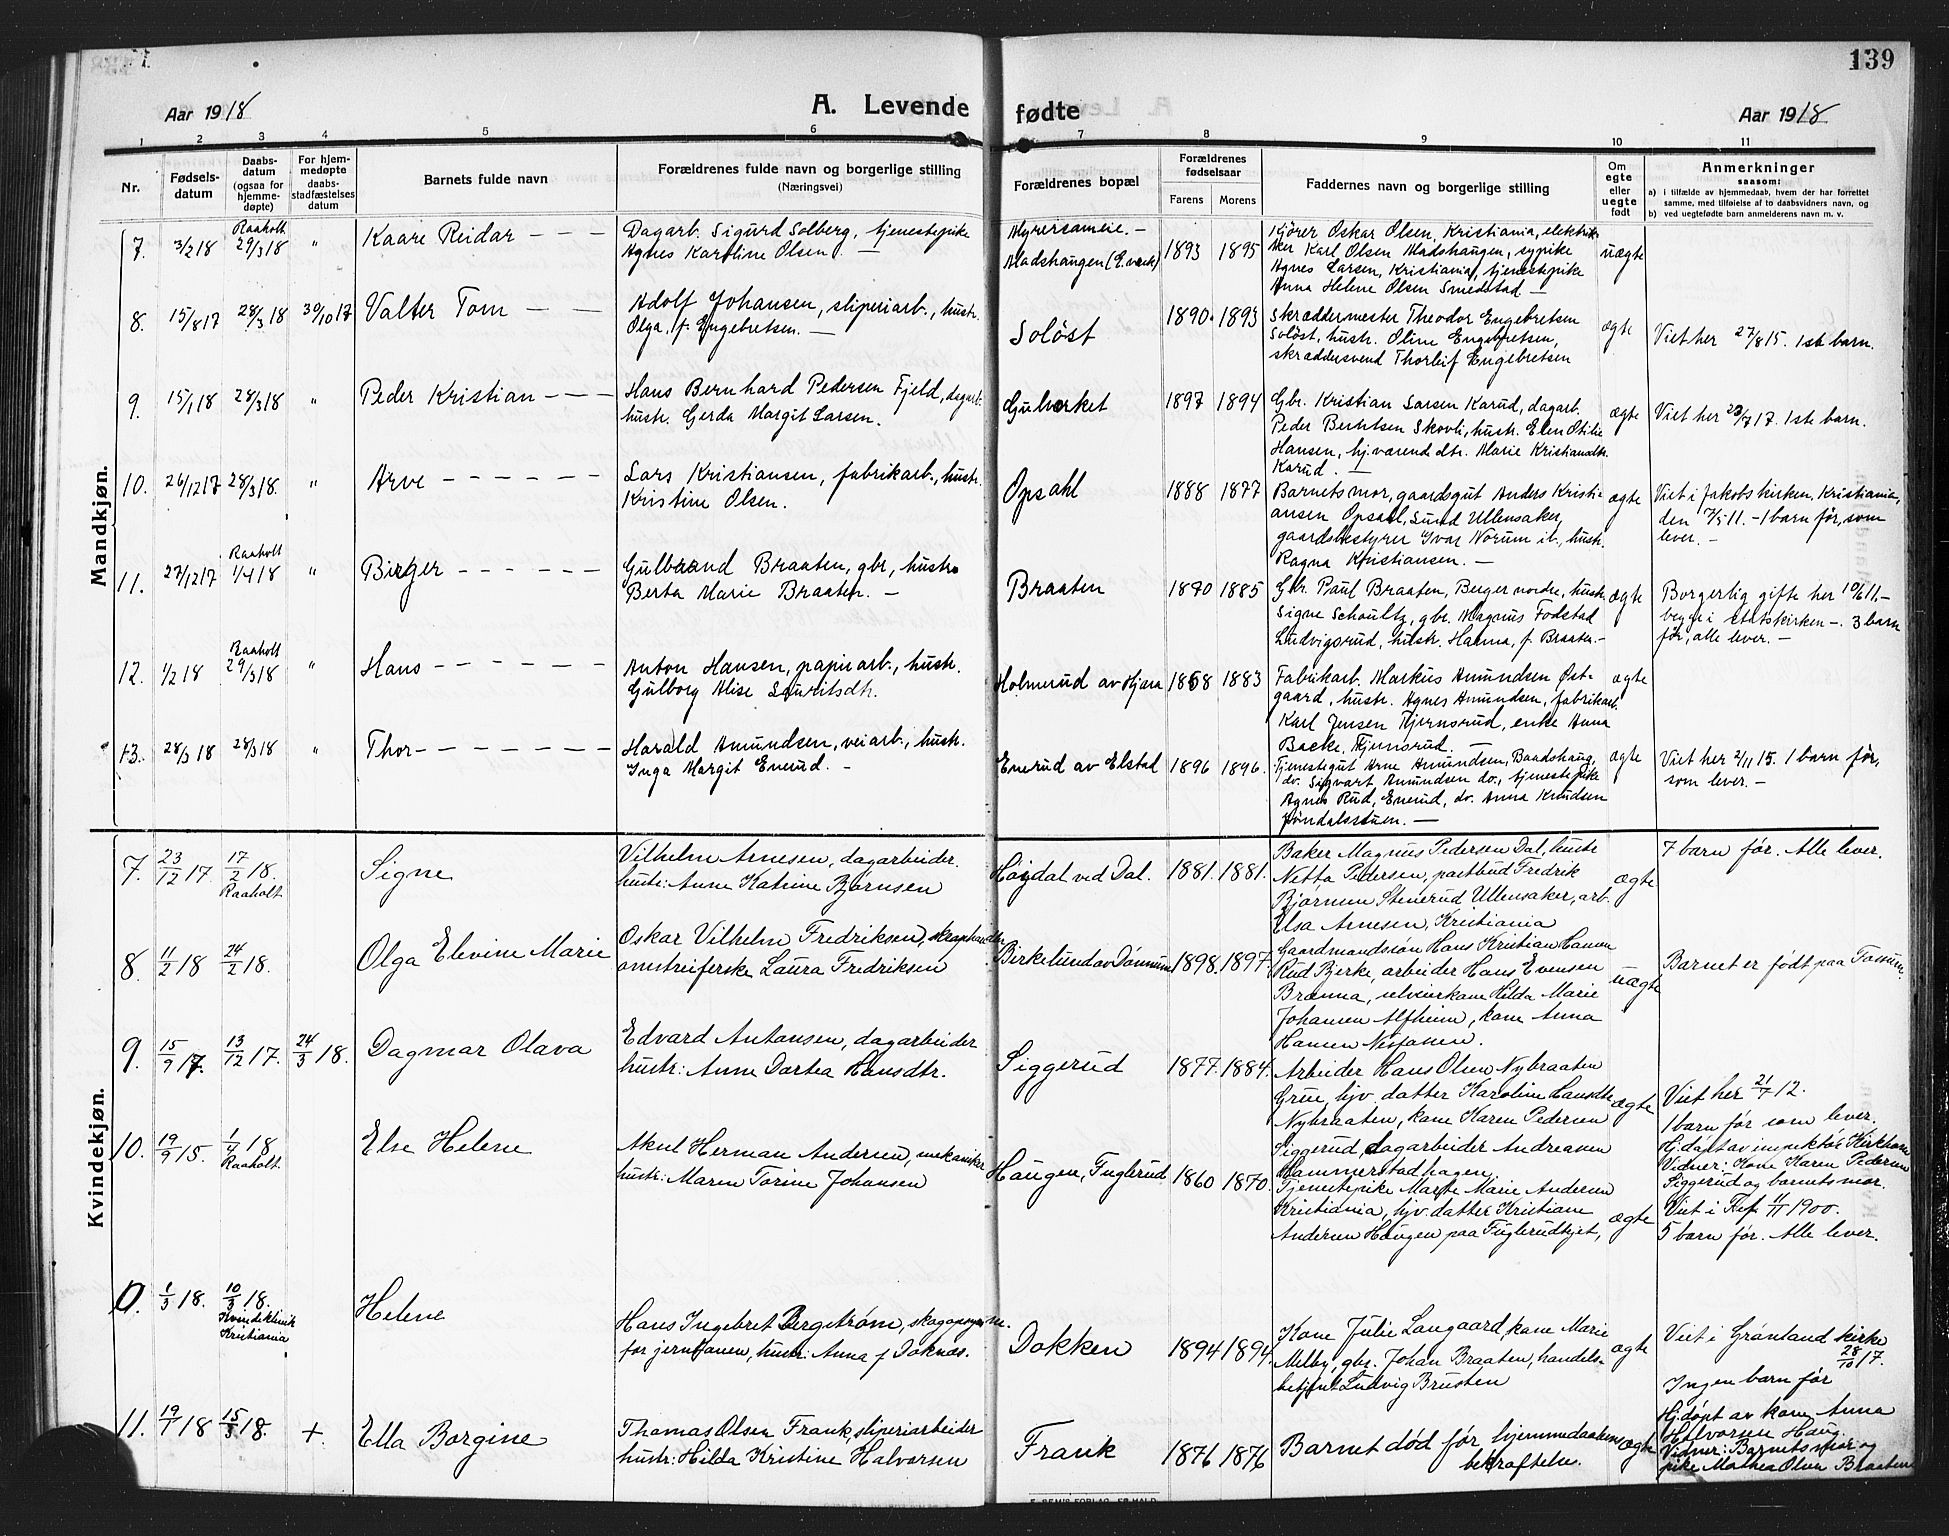 139
Aar 1918
A. Levende fødte
Aar 1918
1 2 3 4 5 6 7 8 9 10 11
Nr.
Fødsels-
datum
Daabs-
datum
(ogsaa for
hjemme-
døpte)
For hjem-
medøpte
daabs-
stadfæstelses
datum
Barnets fulde navn
Forældrenes fulde navn og borgerlige stilling
(Næringsvei)
Forældrenes bopæl
Forældrenes
fødselsaar
Farens Morens
Faddernes navn og borgerlige stilling
Om
egte
eller
uegte
født
Anmerkninger
saasom:
a) i tilfælde av hjemmedaab, hvem der har forrettet
samme, med tilføielse af to daabsvidners navn, og
b) ved uegtefødte barn anmelderens navn m. v.
Mandkjøn.
7. 3/2 18 Raaholt 29/3 18 " Kaare Reidar - - -
Dagarb. Sigurd Solberg, tjenestepike
Agnes Karoline Olsen. -
Myrersameie. -
Madshaugen (E.værk) 1893 1895
Kjører Oskar Olsen, Kristiania, elektrik-
ker Karl Olsen Madshaugen, sypike
Agnes Larsen, Kristiania, tjenestepike
Anna Helene Olsen Smedstad -
uægte
8. 15/8 17 28/3 18 30/10 17 Valter Tom - -
Adolf Johansen, sliperiarb., hustr.
Olga, f. Engebretsen. -
Soløst 1890. 1893
Skræddermester Theodor Engebretsen
Soløst, hustr. Oline Engebretsen,
skræddersvend Thorleif Engebretsen
ægte
Viet her 27/8 15. 1ste barn.
9. 15/1 18 28/3 18 " Peder Kristian - - -
Hans Bernhard Pedersen Fjeld, dagarb.
hustr. Gerda Margit Larsen.
Gulverket 1897 1894
Gbr. Kristian Larsen Karud, dagarb.
Peder Berntsen Skovli, hustr. Elen Otilie
Hansen, hj.værend dtr. Marie Kristiansdtr.
Karud. -
ægte
Viet her 28/7 17. 1ste barn.
10. 26/12 17 28/3 18. " Arve - - - - - -
Lars Kristiansen, fabrikarb., hustr.
Kristine Olsen.
Opsahl 1888 1877
Barnets mor, gaardsgut Anders Kristi-
ansen Opsahl, Sund Ullensaker,
gaardsbestyrer Ivar Norum ib., hustr.
Ragna Kristiansen. -
ægte
Viet i Jakobs kirken, Kristiania,
den 7/5 11. - 1 barn før, som
lever. -
11. 27/12 17 Raaholt 1/4 18 " Birger - - - - - -
Gulbrand Braaten, gbr., hustr.
Berta Marie Braaten. -
Braaten 1890 1885
Gbr. Paul Braaten, Berger nordre, hustr.
Signe Schoultz, gbr. Magnus Fodstad
Ludvigsrud, hustr. Hanna, f. Braaten. -
ægte
Borgerlig gifte her 10/6 11. -
begge i statskirken -. 3 barn
før, alle lever. -
12. 1/2 18 Raaholt 29/3 18 " Hans - - - - - - -
Anton Hansen, papirarb., hustr.
Gulborg Alise Lauritsdtr.
Holmerud av Hjæra 1868 1883
Fabrikarb. Markus Amundsen Øst-
gaard, hustr. Agnes Amundsen, fabrikarb.
Karl Jensen Tjernsrud, enke Anna
Bakke, Tjernsrud. -
ægte
13. 28/3 18 28/3 18 " Thor - - - - - - -
Harald Amundsen, veiarb., hustr.
Inga Margit Enerud. -
Enerud av Elstad 1896 1896.
Tjenestegut Arne Amundsen, Baadshaug,
do. Sigvart Amundsen do., tjenestepike
Agnes Rud, Enerud, do. Anna Knudsen
Jøndalsstuen. -
ægte
Viet her 2/11 15. 1 barn før,
som lever. -
Kvindekjøn.
7. 23/12 17 17/2 18. Raaholt Signe
Vilhelm Arnesen, dagarbeider.
hustr: Anne Katrine Bjørnsen
Høgdal ved Dal. 1881. 1881.
Baker Magnus Pedersen Dal, hustr
Netta Pedersen, postbud Fredrik
Bjørnsen Stenerud Ullensaker, arb.
Elsa Arnesen, Kristiania
ægte
7 barn før. Alle lever.
8. 11/2 18 24/2 18. Olga Elevine Marie
Oskar Vilhelm Fredriksen, skraphandler
omstreiferske Laura Fredriksen
Birkelund av Dønnum 1898. 1897.
Gaardmandssøn Hans Kristian Hansen
Rud Bjerke, arbeider Hans Evensen
Brænna, selveierkone Hilda Marie
Johansen Alfheim, kone Anna
Hansen
uægte
Barnet er født paa Fossum.
9. 15/9 17. 13/12 17. 24/3 18. Dagmar Olava
Edvard Antonsen, dagarbeider
hustr: Anne Dortea Hansdtr.
Siggerud 1877. 1884.
Arbeider Hans Olsen Nybraaten
Grue, hjv. datter Karoline Hansdtr
Nybraaten, kone Karen Pedersen
Siggerud, dagarbeider Andreasen
Hammerstadhagen
ægte
Viet her 21/7 12.
1 barn før som lever.
Hj.døpt av inspektør Kirkhorn
Vidner: Kone Karen Pedersen
Siggerud og barnets mor.
10. 19/9 15. 1/4 18 Raaholt. Else Helene
Aksel Herman Andersen, mekaniker
hustr: Maren Torine Johansen
Haugen, Fuglerud 1860 1870.
Tjenestepike Marte Marie Andersen
Kristiania, hjv. datter Kristiane
Andersen Haugen paa Fuglerudejet,
ægte
Viet i 11/11 1900.
5 barn før. Alle lever.
10. 1/3 18. 10/3 18. Kvindeklinik Kristiania Helene
Hans Ingebret Bergstrøm,
for jernbanen, hustr: Anna f. Doknæs.
Dokken 1894 1894.
Kone Julie Langaard, kone Marie
Melby, gbr. Johan Braaten, handels-
betjent Ludvig Brusten
ægte
Viet i Grønland kirke
28/10 17.
Ingen barn før
11. 19/1 18 15/3 18. +. Ella Borgine
Thomas Olsen Frank, sliperiarbeider
hustr: Hilda Kristine Halvorsen
Frank 1876 1876
Barnet død før hjemmedaabens
bekræftelse.
ægte
Hj.døpt av kone Anna
Halvorsen Haug.
Vidner: Barnets mor og
pike Mathea Olsen Braaten